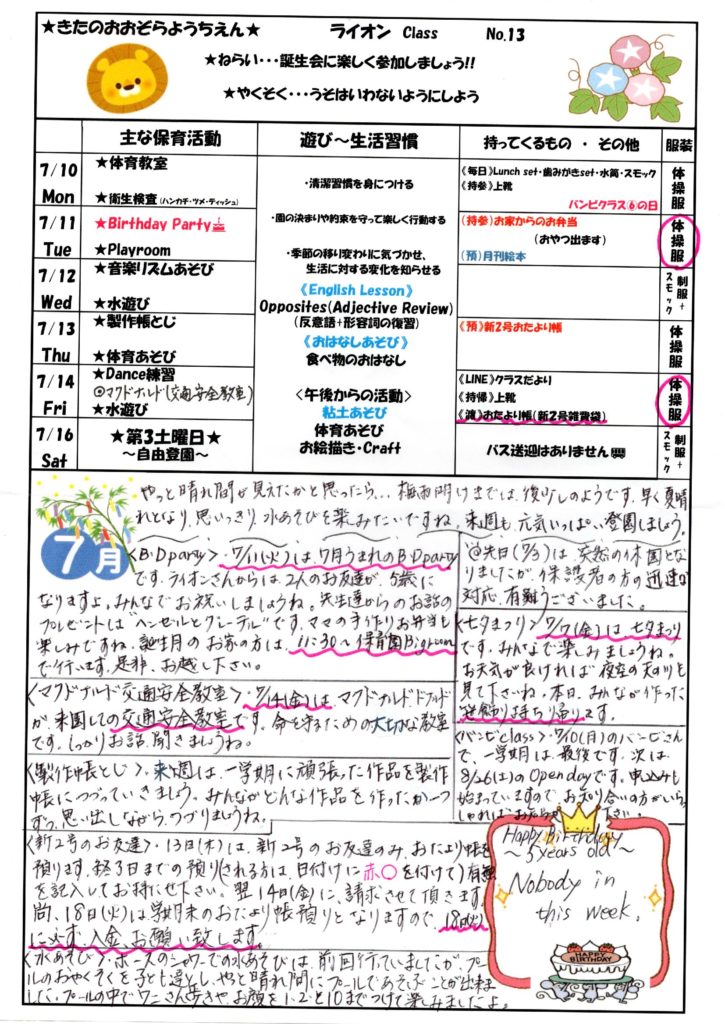 ★きたのおおぞらようちえん★ ライオン Class No.13
★ねらい・・・誕生会に楽しく参加しましょう!!
★やくそく・・・うそはいわないようにしよう
主な保育活動 遊び～生活習慣 持ってくるもの ・ その他 服装
7/10 Mon
★体育教室
★衛生検査(ハンカチ・ツメ・ティッシュ)
・清潔習慣を身につける
《毎日》Lunch set・歯みがきset・水筒・スモック
《持参》上靴
バンビクラス⑥の日
体操服
7/11 Tue
★Birthday Party
★Playroom
・園の決まりや約束を守って楽しく行動する
(持参)お家からのお弁当
(おやつ出ます)
(預)月刊絵本
体操服
7/12 Wed
★音楽リズムあそび
★水遊び
・季節の移り変わりに気づかせ、
生活に対する変化を知らせる
《English Lesson》
Opposites(Adjective Review)
(反意語+形容詞の復習)
制服+スモック
7/13 Thu
★製作帳とじ
★体育あそび
《おはなしあそび》
食べ物のおはなし
《預》新2号おたより帳
体操服
7/14 Fri
★Dance練習
◎マクドナルド(交通安全教室)
★水遊び
<午後からの活動>
粘土あそび
体育あそび
お絵描き・Craft
《LINE》クラスだより
《持帰》上靴
《渡》おたより帳(新2号雑費袋)
体操服
7/16 Sat
★第3土曜日★
～自由登園～
バス送迎はありません
制服+スモック
7月
やっと晴れ間が見えたかと思ったら... 梅雨明けまでは、後少しのようです。早く夏晴
れとなり、思いっきり、水あそびを楽しみたいですね。来週も、元気いっぱい登園しましょう。
<B・Dparty>・7/11(火)は7月うまれのB・Dparty
です。ライオンさんからは、2人のお友達が、5歳に
なりますよ。みんなでお祝いしましょうね。先生達からのお話の
プレゼントは"ヘンゼルとグレーテル"です。ママの手作りお弁当も
楽しみですね。誕生月のお家の方は、11:30～保育園Bigroom
で行います。是非、お越し下さい。
@先日(7/3)は突然の休園と
なりましたが、保護者の方の迅速な
対応、有難うございました。
<七夕まつり>7/7(金)は、七夕まつり
です。みんなで楽しみましょうね。
お天気が良ければ夜空の天の川も
見て下さいね。本日、みんなが作った
笹飾り持ち帰ります。
<マクドナルド交通安全教室>・7/14(金)は、マクドナルドドナルド
が、来園しての交通安全教室です。命を守るための大切な教室
です。しっかりお話、聞きましょうね。
<バンビclass>・7/10(月)のバンビさん
で、一学期は、最後です。次は、
8/26(土)のOpendayです。申込みも
始まっていますので、お知り合いの方がいら
しゃれば 下さい。
<製作帳とじ>・来週は、一学期に頑張った作品を製作
帳につづっていきましょう。みんながどんな作品を作ったか一つ
ずつ、思い出しながら、つづりましょうね。
<新2号のお友達>・13日(木)は、新2号のお友達のみ、おたより帳を
預ります。終了日までの預り(される方は、日付けに赤○を付けて)有無
を記入してお持たせ下さい。翌14日(金)に、請求させて頂きます。
尚、18日(火)は学期末のおたより帳預りとなりますので、18日(火)
に必ず、入金、お願い致します。
<水あそび>・ホースのシャワーでの水あそびは、前回行っていましたが、プー
ルのおやくそくを子ども達とし、やっと晴れ間にプールであそぶことが出来ま
した。プールの中でワニさん歩きや、お顔を1・2と10までつけて楽しみましたよ。
Happy Birthday
～5years old～
Nobody in
this week.
HAPPY
BIRTHDAY